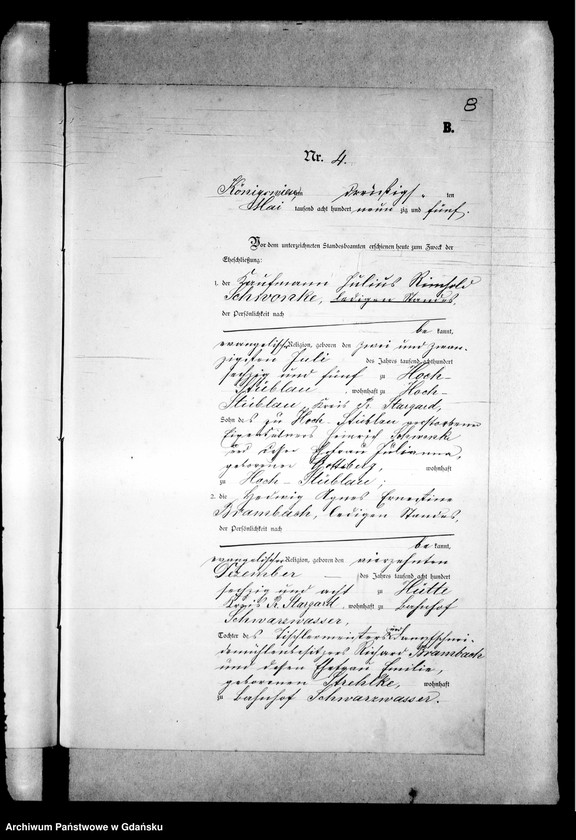 8
B.
Nr. 4.
Königswiese am dreißigs ten
Mai tausend acht hundert neun zig und fünf.
Vor dem unterzeichneten Standesbeamten erschienen heute zum Zweck der
Eheschließung:
1. der Kaufmann Julius Reinhold
Schwonke, ledigen Standes,
der Persönlichkeit nach
be kannt,
evangelischer Religion, geboren den zwei und zwan-
zigsten Juli des Jahres tausend acht hundert
sechzig und fünf zu Hoch-
Stüblau, wohnhaft zu Hoch-
Stüblau, Kreis Pr. Stargard,
Sohn des zu Hoch-Stüblau verstorbenen
Eigentümers Heinrich Schwonke
und dessen Ehefrau Julianna,
geborener, wohnhaft
zu Hoch-Stüblau;
2. die Hedwig Agnes Ernestine
Brambach, ledigen Standes,
der Persönlichkeit nach
be kannt,
evangelischer Religion, geboren den vierzehnten
Dezember des Jahres tausend acht hundert
sechzig und acht zu Hütte
Kreis Pr. Stargard, wohnhaft zu Bahnhof
Schwarzwasser,
Tochter des Tischlermeisters und Dampfschnei-
demühlenbesitzers Richard Brambach
und dessen Ehefrau Emilie,
geborenen Strehlke, wohnhaft
zu Bahnhof Schwarzwasser.
Archiwum Państwowe w Gdańsku